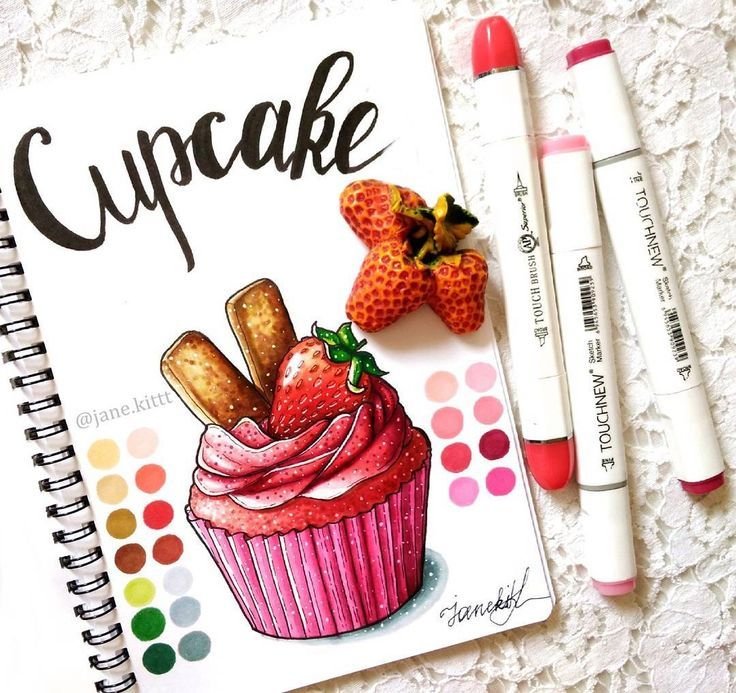 Cupcake
@jane.kittt
TOUCH BRUSH
Superior®
TOUCHNEW®
Sketch
Marker
TOUCHNEW®
Sketch
Marker